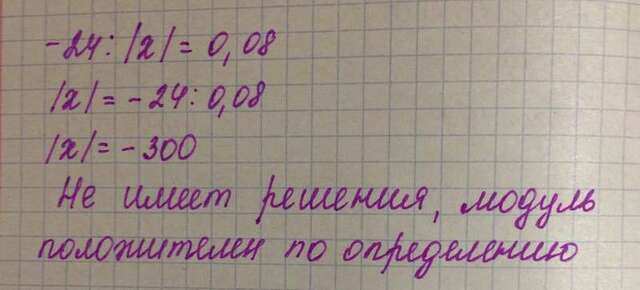 -24 : |x| = 0,08
|x| = - 24 : 0,08
|x| = - 300
Не имеет решения, модуль
положителен по определению